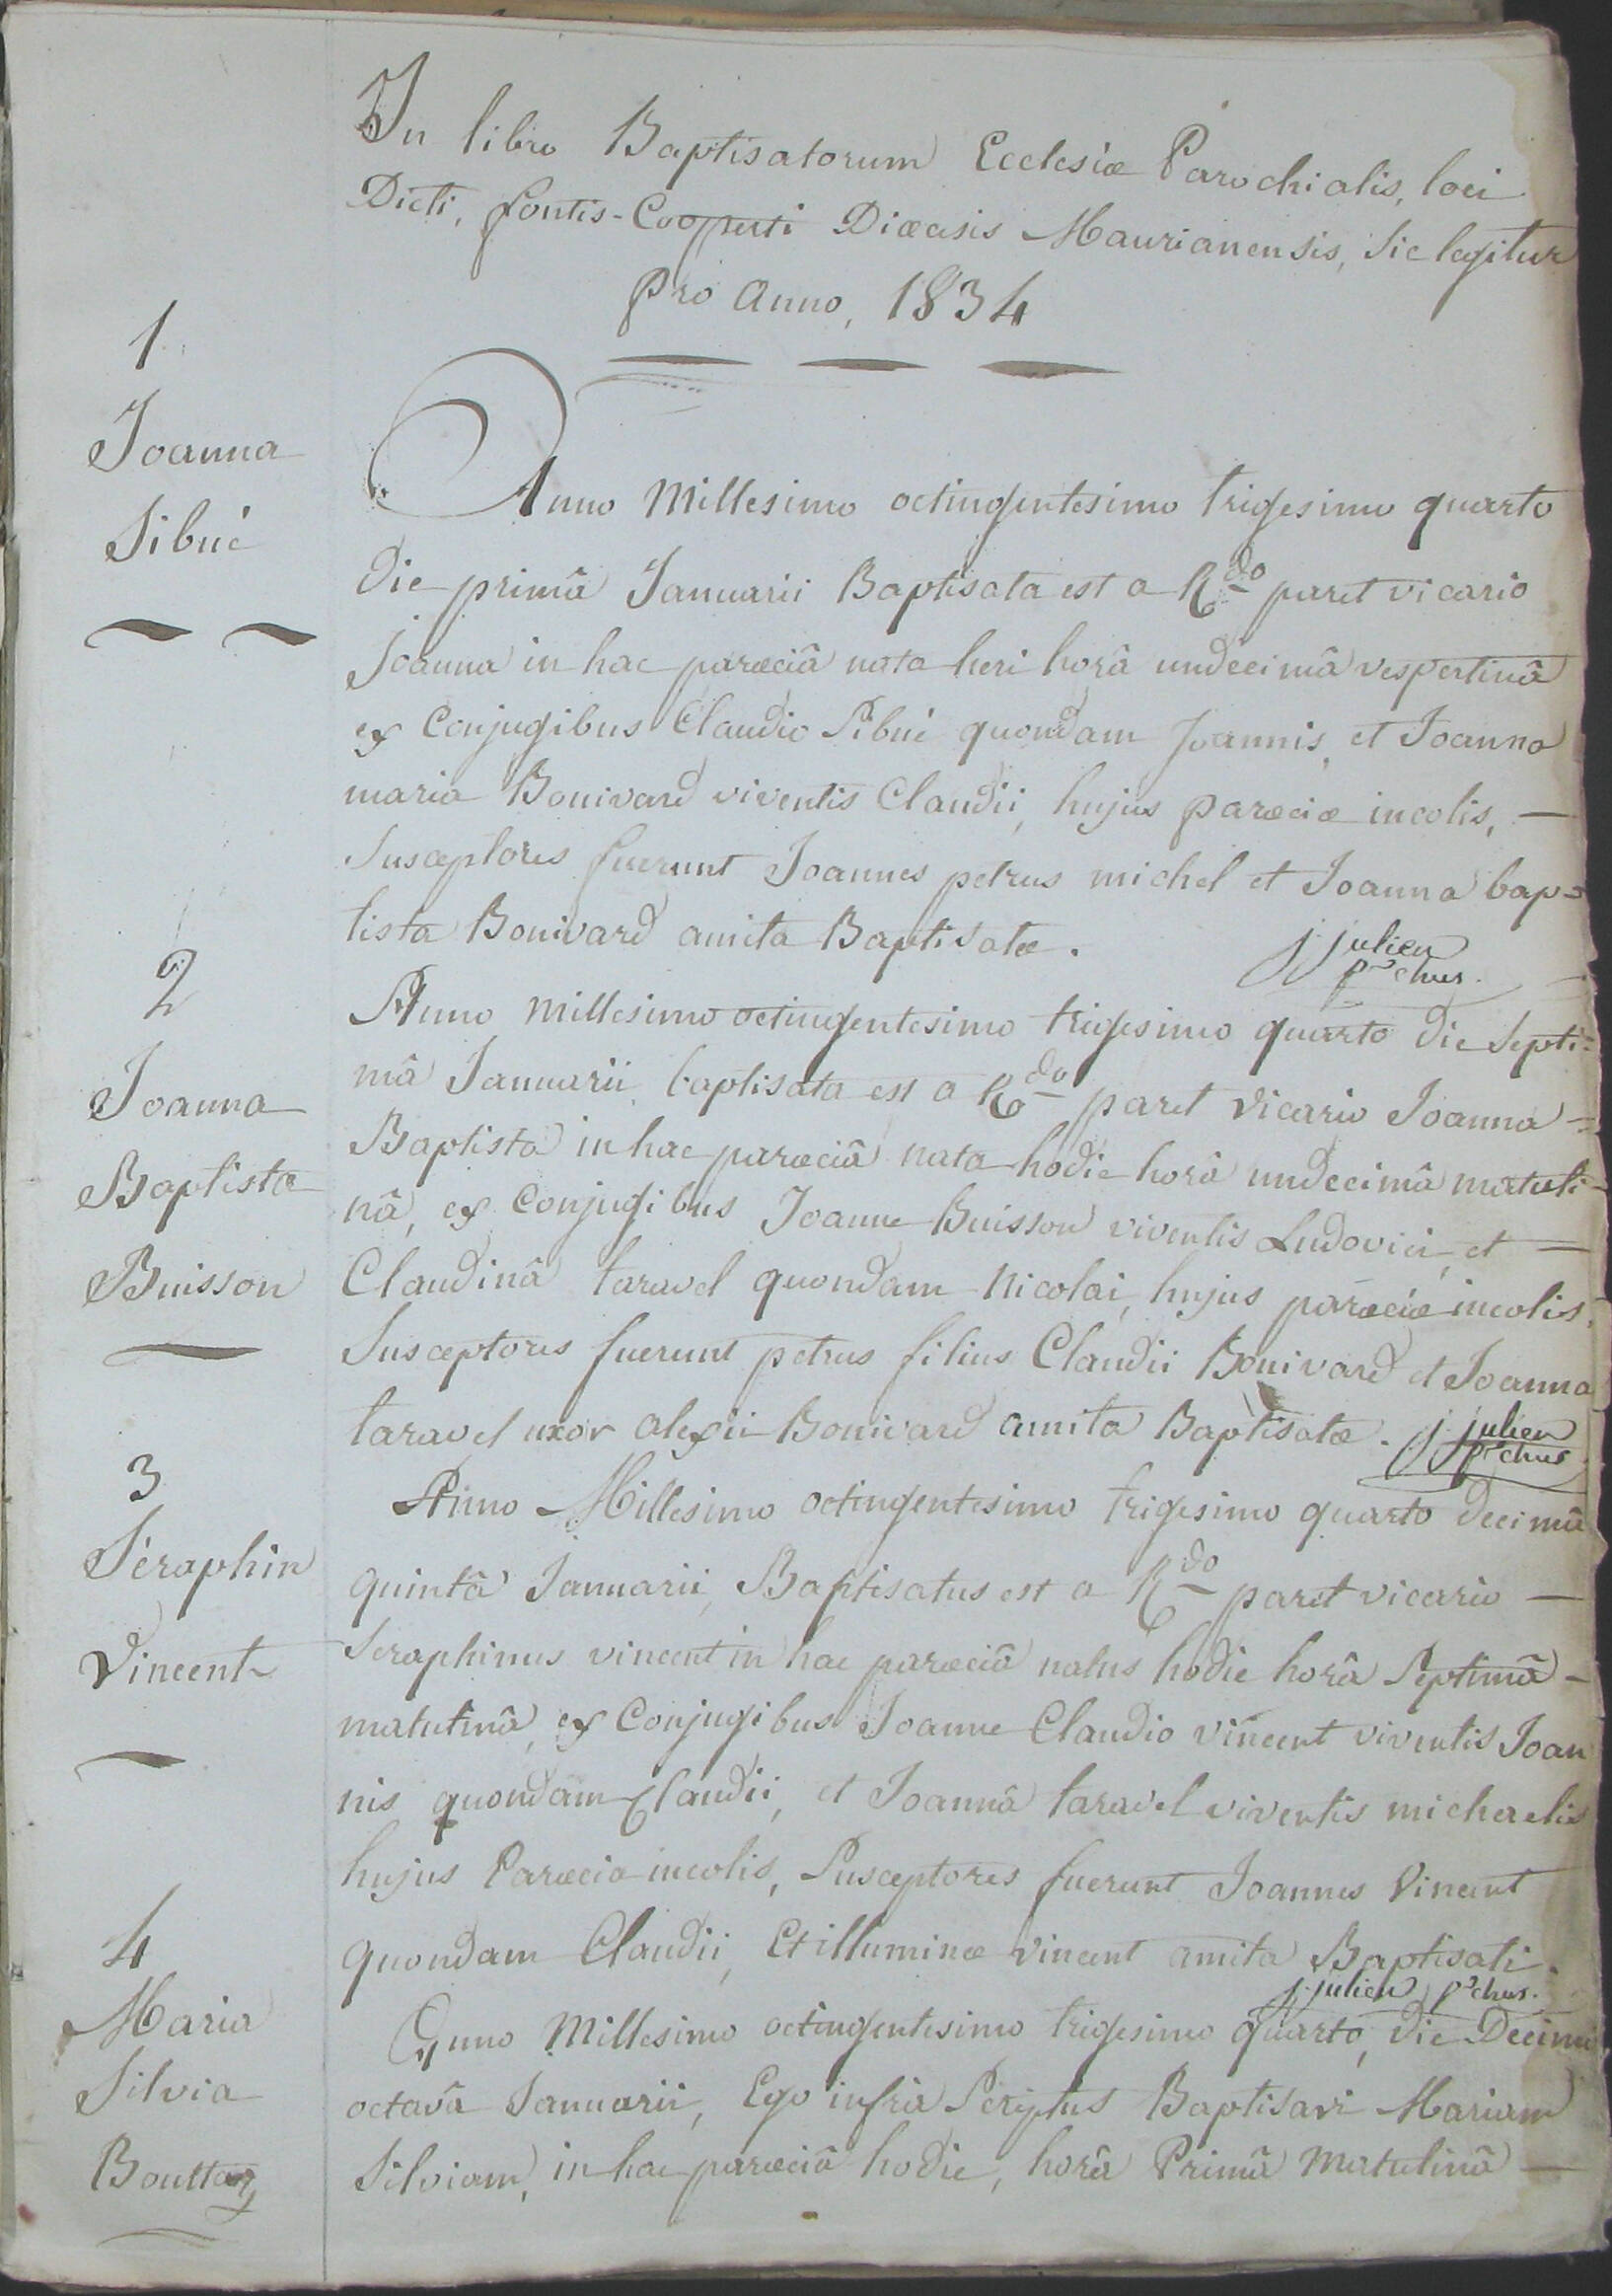 In libro Baptisatorum Ecclesiæ Parochialis, loci
Dicti, fontis-Cooperti Diœcesis Maurianensis, sic legitur
Pro anno, 1834
1
Joanna
Sibué
Anno Millesimo octingentesimo trigesimo quarto
die primâ Januarii Baptisata est a Rdo paret vicario
Joanna in hac parœciâ nata heri horâ undecimâ vespertinâ
ex Conjugibus Claudio Sibué quondam Joannis, et Joanna
maria Bonivard viventis Claudii, hujus parœciæ incolis, —
Susceptores fuerunt Joannes petrus michel et Joanna bap=
tista Bonivard amita Baptisatæ.
j julien
pchus.
2
Joanna
Baptista
Buisson
Anno millesimo octingentesimo trigesimo quarto die Septi=
mâ Januarii baptisata est a Rdo paret vicario Joanna =
Baptista in hac parœciâ nata hodie horâ undecimâ matuti-
nâ, ex Conjugibus Joanne Buisson viventis Ludovici, et —
Claudinâ taravel quondam Nicolai, hujus parœciæ incolis,
Susceptores fuerunt petrus filius Claudii Bonivard et Joanna
taravel uxor alexii Bonivard amita Baptisatæ.
j julien
pchus
3
Séraphin
Vincent
Anno Millesimo octingentesimo trigesimo quarto decimâ
quintâ Januarii, Baptisatus est a Rdo paret vicario —
Seraphinus vincent in hac parœciâ natus hodie horâ Septimâ -
matutinâ, ex Conjugibus Joanne Claudio vincent viventis Joan
nis quondam Claudii, et Joannâ taravel viventis michaelis
hujus Parœciæ incolis, Susceptores fuerunt Joannes Vincent
quondam Claudii, Et illuminæ vincent amita Baptisati.
j. julien pchus.
4
Maria
Silvia
Bouttaz
Anno Millesimo octingentesimo trigesimo quarto, die Decimâ
octavâ Januarii, Ego infra Scriptus Baptisavi Mariam
Silviam, in hac parœciâ hodie, horâ Primâ Matutinâ —